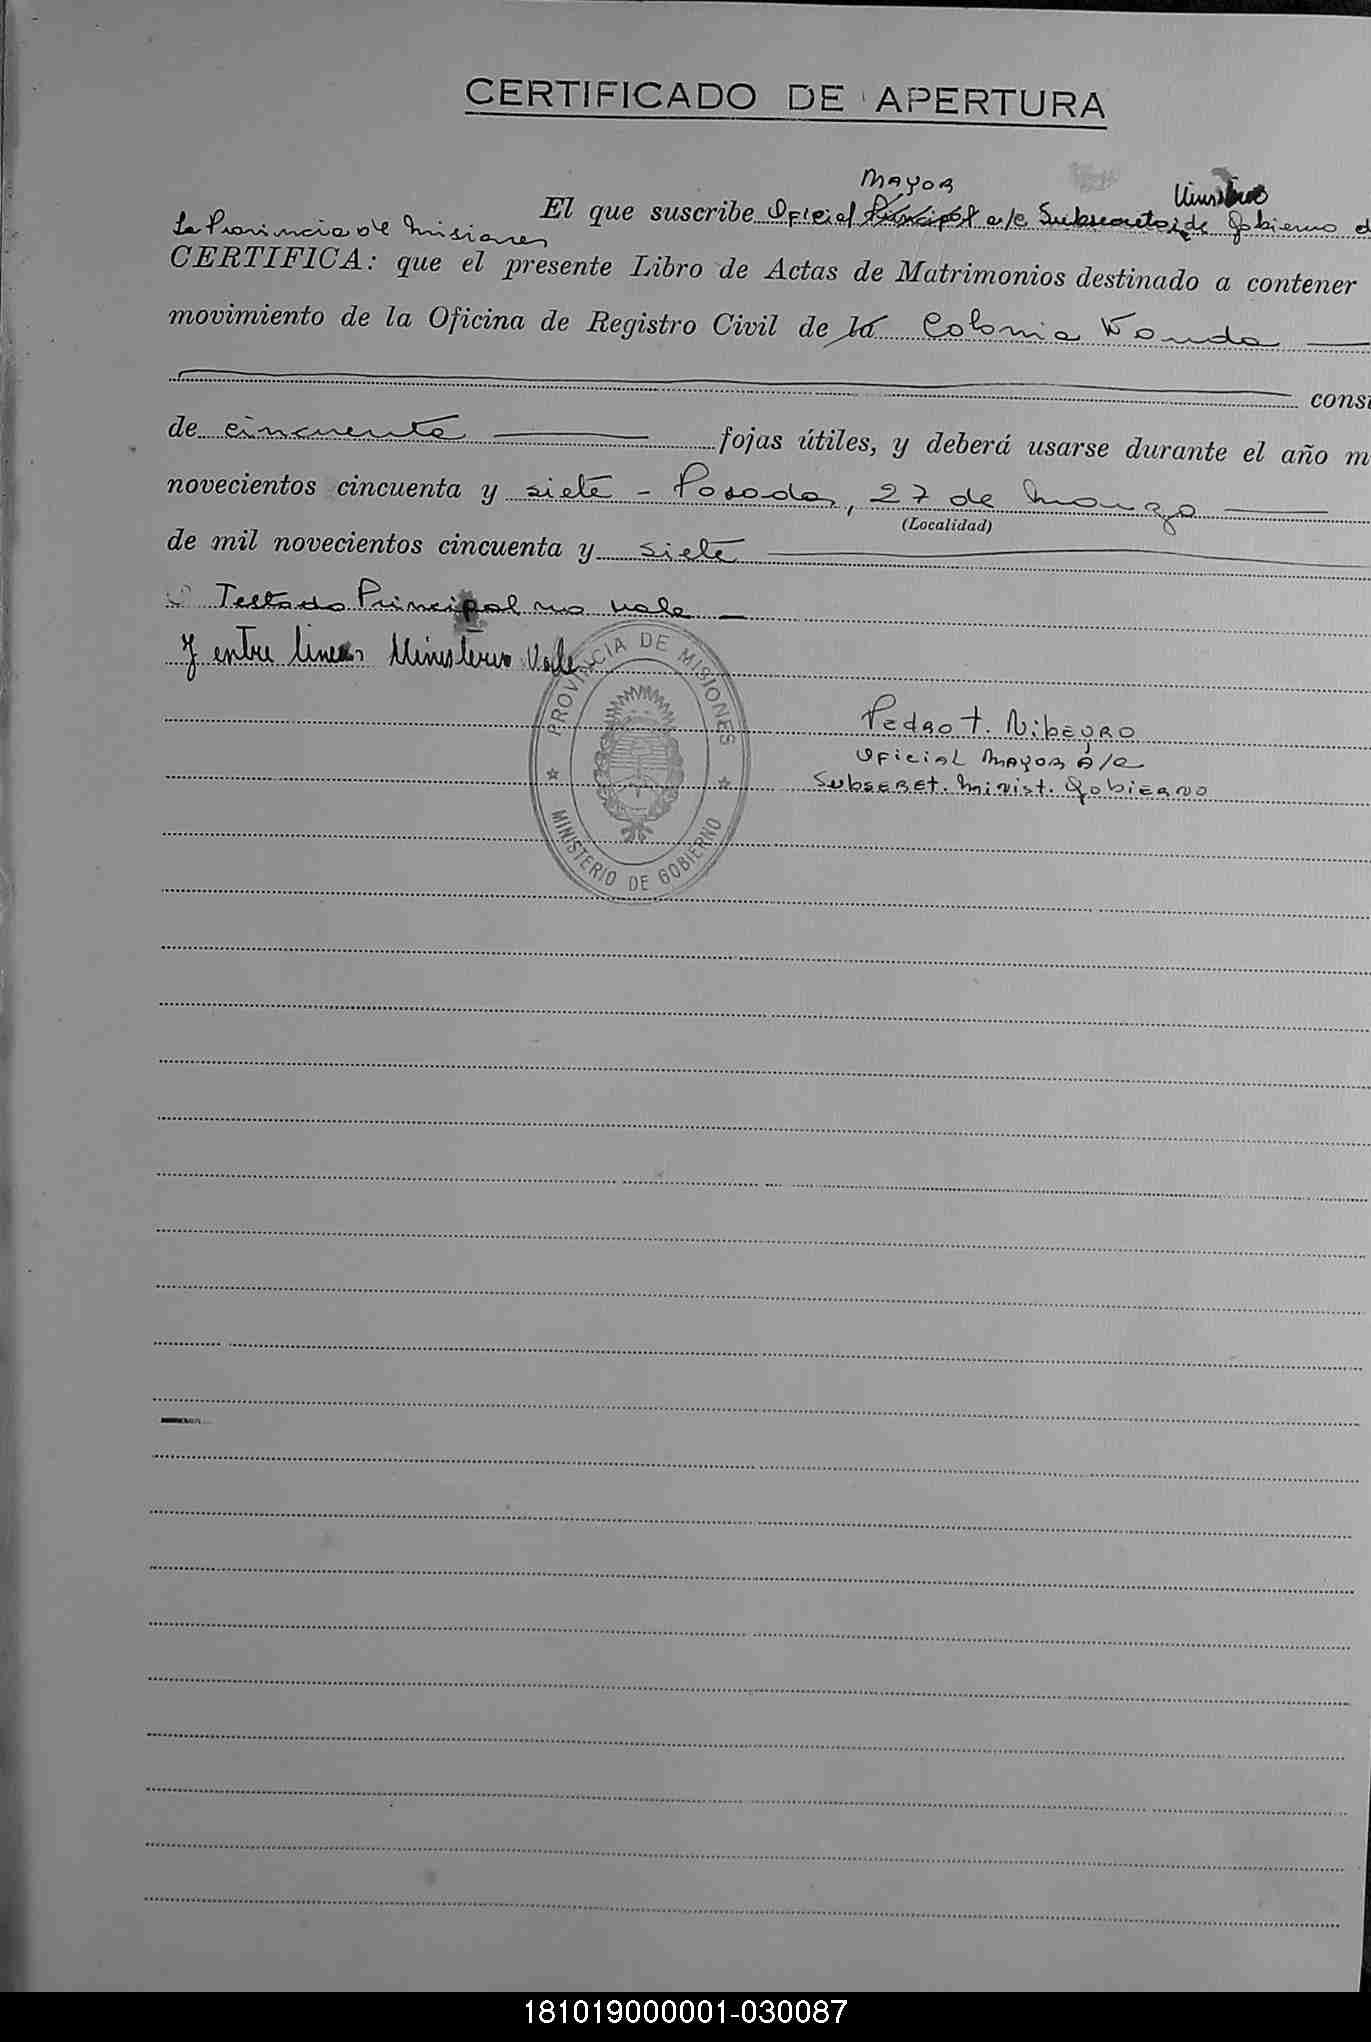 CERTIFICADO DE APERTURA
Mayor Ministerio
El que suscribe Oficial Principal a/c Subsecretaria de Gobierno d
La Provincia de Misiones
CERTIFICA: que el presente Libro de Actas de Matrimonios destinado a contener
movimiento de la Oficina de Registro Civil de la Colonia Wanda
consi
de cincuenta fojas útiles, y deberá usarse durante el año m
novecientos cincuenta y siete - Posadas, 27 de Marzo
(Localidad)
de mil novecientos cincuenta y siete
Testado Principal no vale
Y entre lineas Ministerio Vale
PROVINCIA DE MISIONES
MINISTERIO DE GOBIERNO
Pedro T. Nibeyro
Oficial Mayor A/C
Subsecret. Minist. Gobierno
181019000001-030087